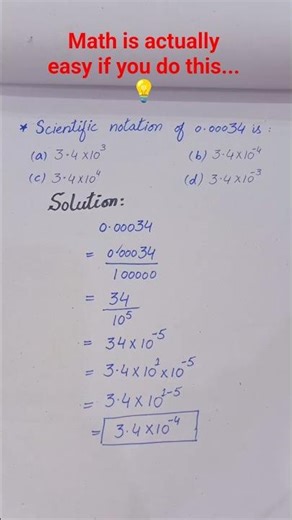 Math is actually
easy if you do this...
* Scientific notation of 0.00034 is :
(a) 3.4 x10³ (b) 3.4x10⁻⁴
(c) 3.4 x10⁴ (d) 3.4 x10⁻³
Solution:
0.00034
= 0.00034
100000
= 34
10⁵
= 34 x 10⁻⁵
= 3.4 x 10¹ x 10⁻⁵
= 3.4 x 10¹⁻⁵
= 3.4 x 10⁻⁴